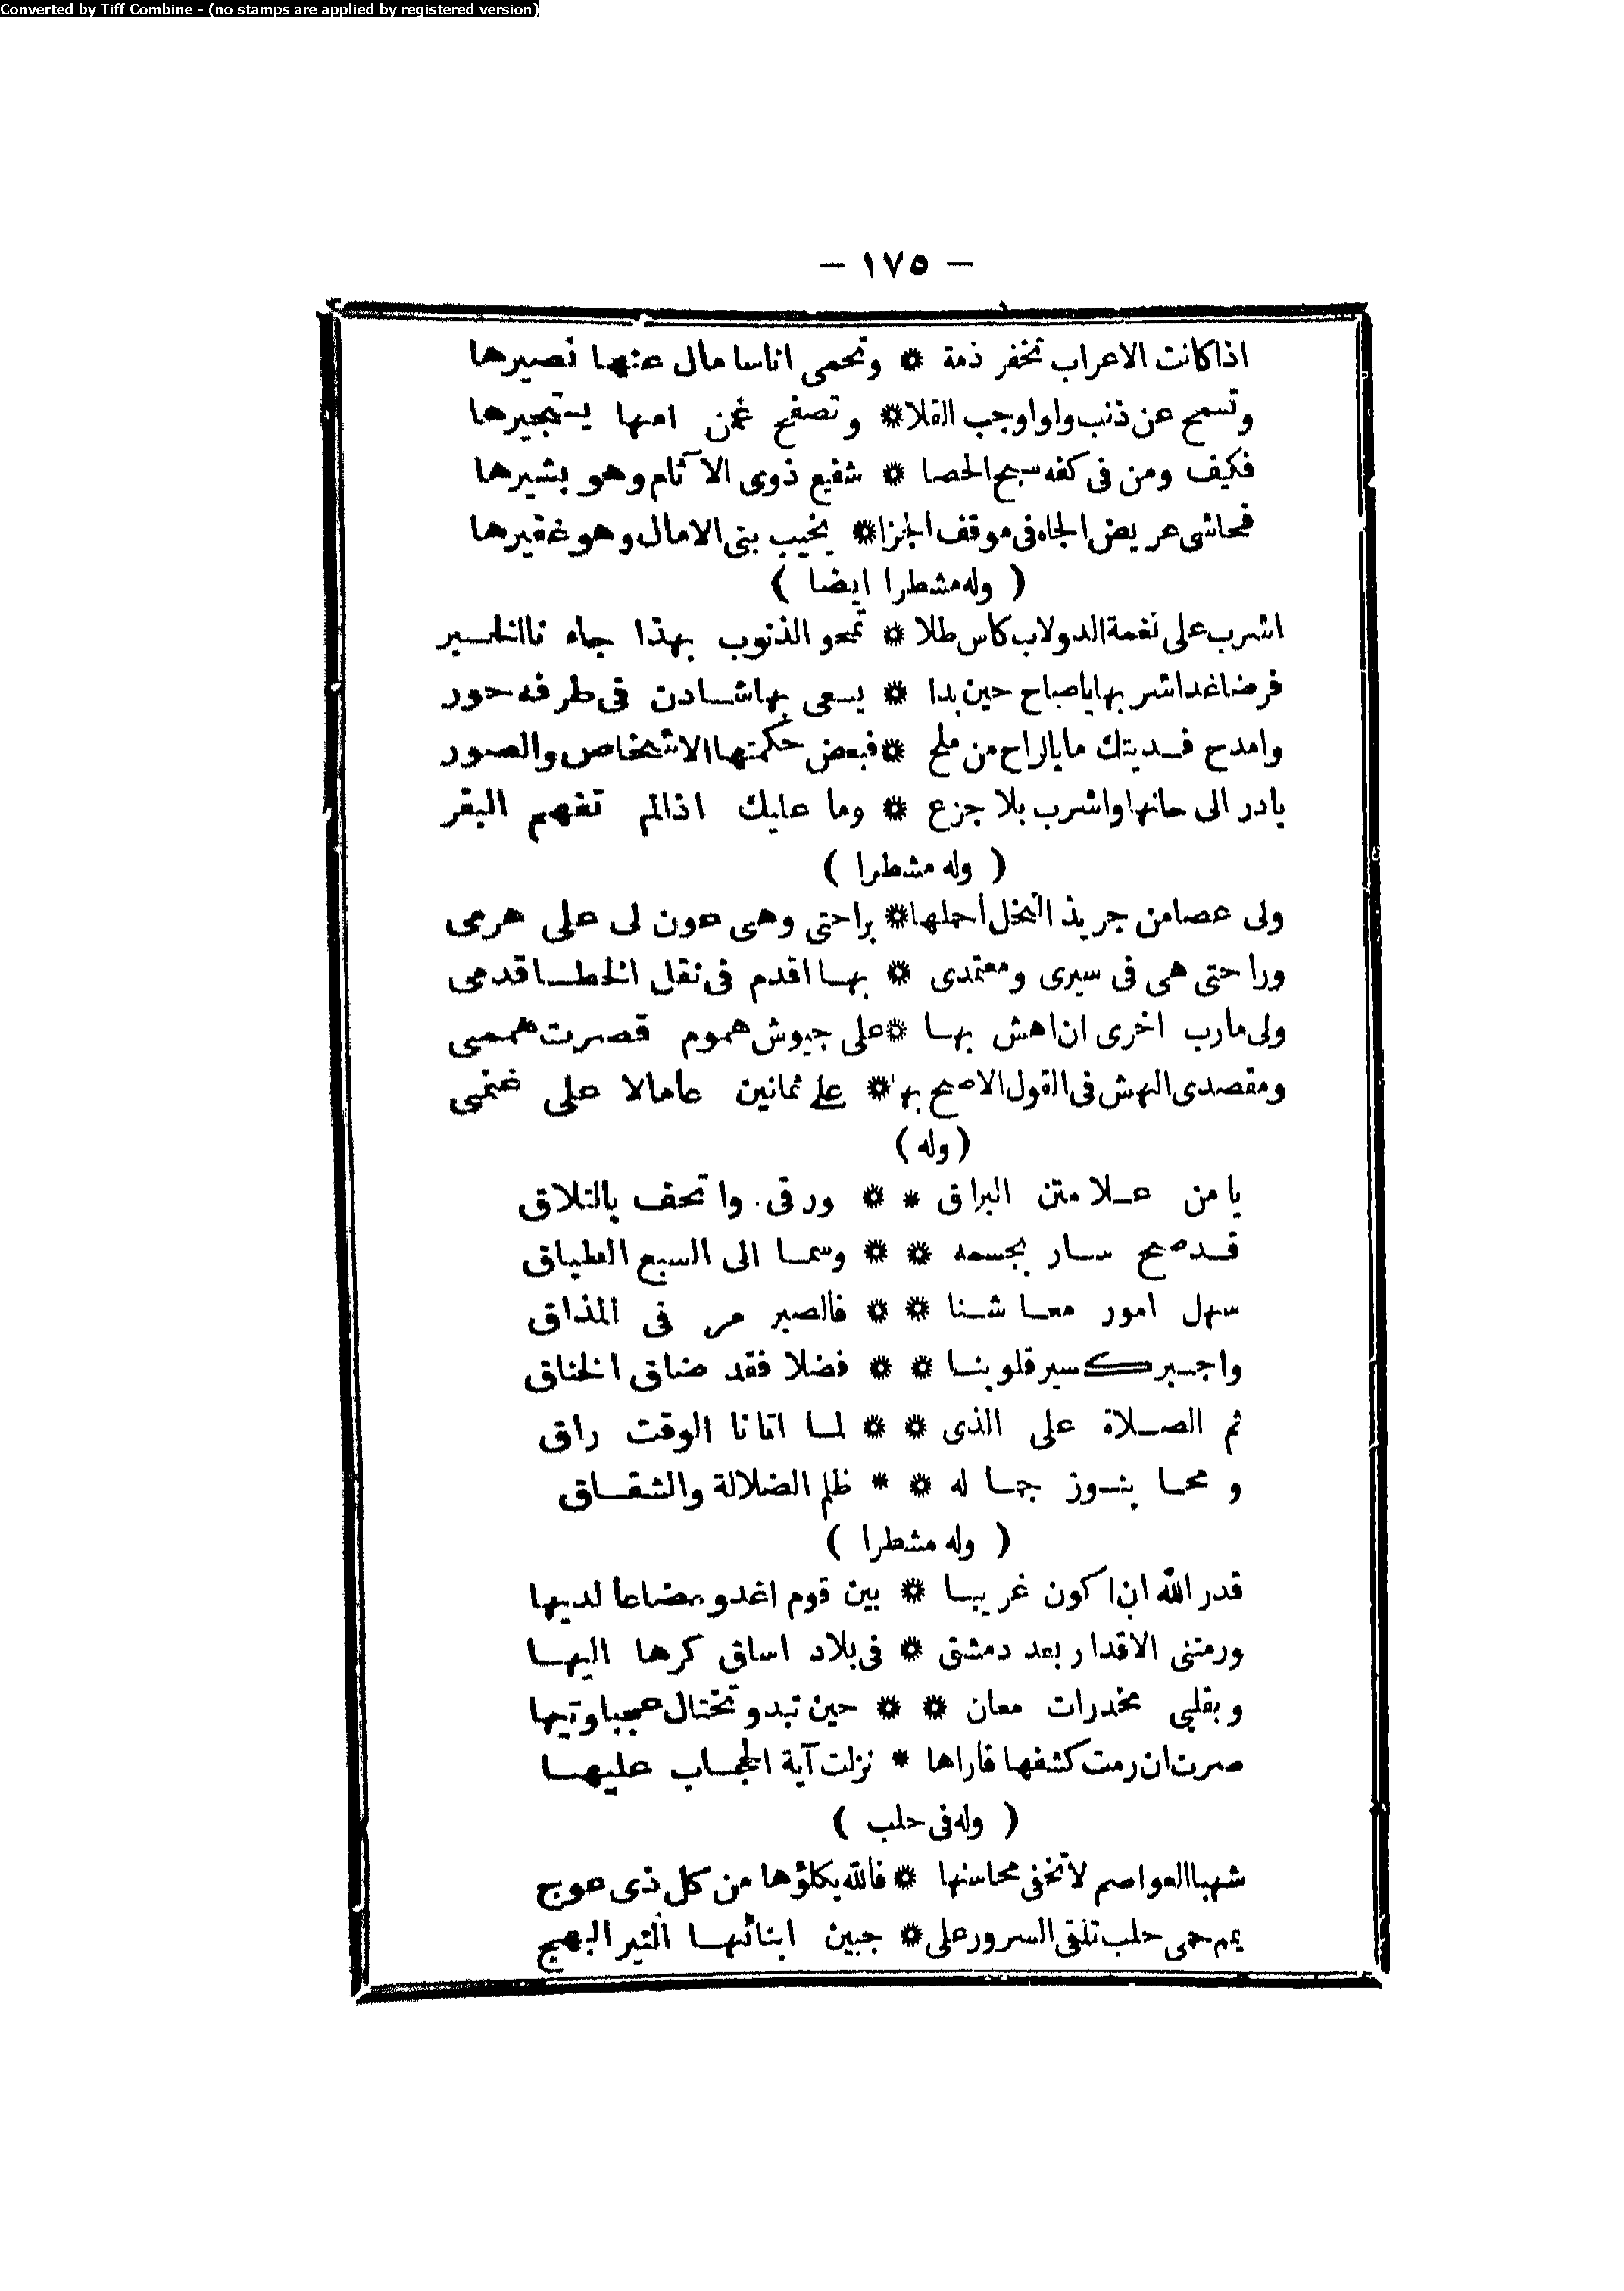 Converted by Tiff Combine - (no stamps are applied by registered version)
– ١٧٥ –
اذا كانت الاعراب تخفر ذمة * وتحمى اناسا مال عنها نصيرها
وتسمح عن ذنب ولو اوجب القلا * وتصفح عمن امها يستجيرها
فكيف ومن فى كفه سبح الحصا * شفيع ذوى الآثام وهو بشيرها
فحاشى عريض الجاه فى موقف الجزا * يخيب بنى الامال وهو غفيرها
( وله مشطرا ايضا )
اشرب على نغمة الدولاب كاس طلا * تمحو الذنوب بهذا جاءنا الخبر
فرضا غدا شربها ياصاح حين بدا * يسعى بها شادن فى طرفه حور
وامدح فديتك ما بالراح من ملح * فبعض حكمتها الاشخاص والصور
بادر الى حانها واشرب بلا جزع * وما عليك اذا لم تفهم البقر
( وله مشطرا )
ولى عصا من جريد النخل أحملها * براحتى وهى عون لى على هرمى
وراحتى هى فى سيرى ومعتمدى * بها اقدم فى نقل الخطا قدمى
ولى مارب اخرى ان اهش بها * على جيوش هموم قصرت هممى
ومقصدى الهش فى القول الاصح بها * على ثمانين عاما لا على غنمى
(وله)
يا من علا متن البراق * * ورقى. واتحف بالتلاق
قد صح سار بجسمه * * وسما الى السبع الطباق
سهل امور معاشنا * * فالصبر مر فى المذاق
واجبر كسير قلوبنا * * فضلا فقد ضاق الخناق
ثم الصلاة على الذى * * لما اتانا الوقت راق
و محا بنوز جماله * * ظلم الضلالة والشقاق
( وله مشطرا )
قدر الله ان اكون غريبا * بين قوم اغدو مضاعا لديها
ورمتنى الاقدار بعد دمشق * فى بلاد اساق كرها اليها
وبقلبى مخدرات معان * * حين تبدو تختال عجبا وتيها
صرت ان رمت كشفها فاراها * نزلت آية الحجاب عليها
( وله فى حلب )
شهبا العواصم لا تخفى محاسنها * فالله يكلؤها من كل ذى عوج
يمم حمى حلب تلقى السرور على * جبين ابنائها النير البهج